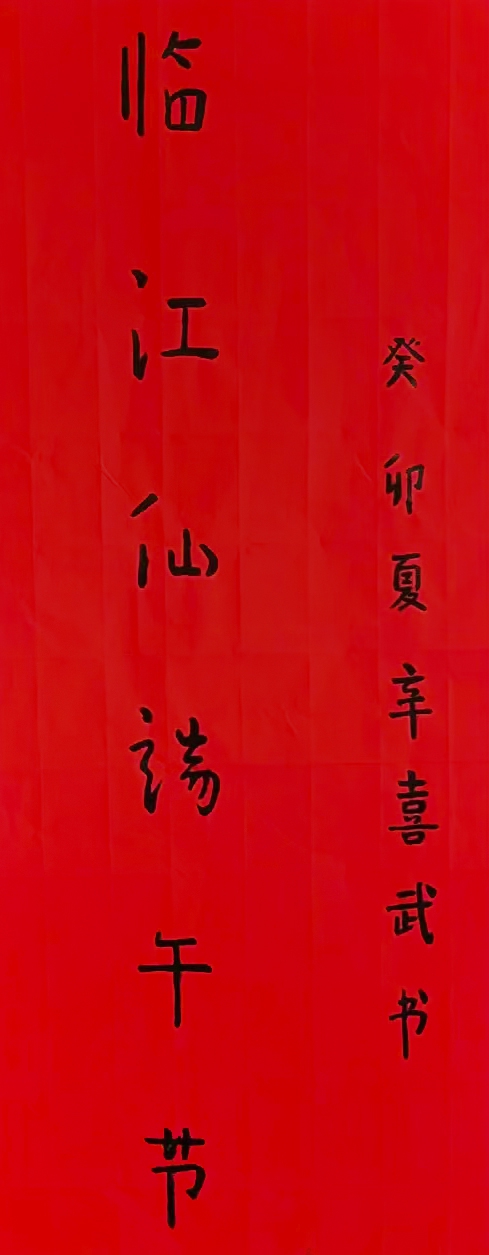 临江仙端午节
癸卯夏辛喜武书